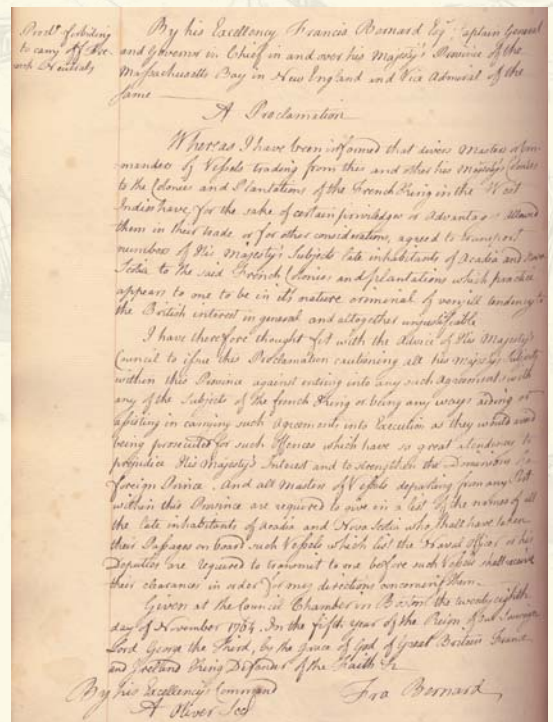 Procl.n forbiding
to carry off Fre
nch Neutrals
By his Excellency Francis Bernard Esq.r Captain General
and Governor in Chief in and over his Majesty's Province of the
Massachusetts Bay in New England and Vice Admiral of the
same
A Proclamation
Whereas I have been informed that divers Masters or Com-
manders of Vessels trading from this and other his Majesty's Colonies
to the Colonies and Plantations of the French King in the West
Indies have, for the sake of certain priviledges or Advantages allowed
them in their trade or for other considerations, agreed to transport
number of His Majesty's Subjects late inhabitants of Acadia and Nova
Scotia to the said French Colonies and plantations which practice
appears to me to be in its nature criminal of very ill tendency to
the British interest in general and altogether unjustifiable
I have therefore thought fit with the Advice of His Majesty's
Council to issue this Proclamation cautioning all his Majesty's Subjects
within this Province against entring into any such Agreements with
any of the Subjects of the french King or being any ways aiding or
assisting in carrying such Agreements into Execution as they would avoid
being prosecuted for such Offences which have so great a tendency to
prejudice His Majesty's Interest and to strengthen the Dominions
foreign Prince. And all Masters of Vessels departing from any Port
within this Province are required to give in a list of the names of all
the late inhabitants of Acadia and Nova Scotia who shall have taken
their Passages on board such Vessels which list the Naval Officer or his
Deputies are required to transmit to me before such Vessels shall receive
their clearances in order for my directions concerning them.
Given at the Council Chamber in Boston the twenty eighth
day of November 1764. In the fifth year of the Reign of our Sovereign
Lord George the Third, by the Grace of God of Great Britain France
and Ireland King Defender of the Faith &c
By his Excellency's Command
Fra Bernard
A Oliver Sec